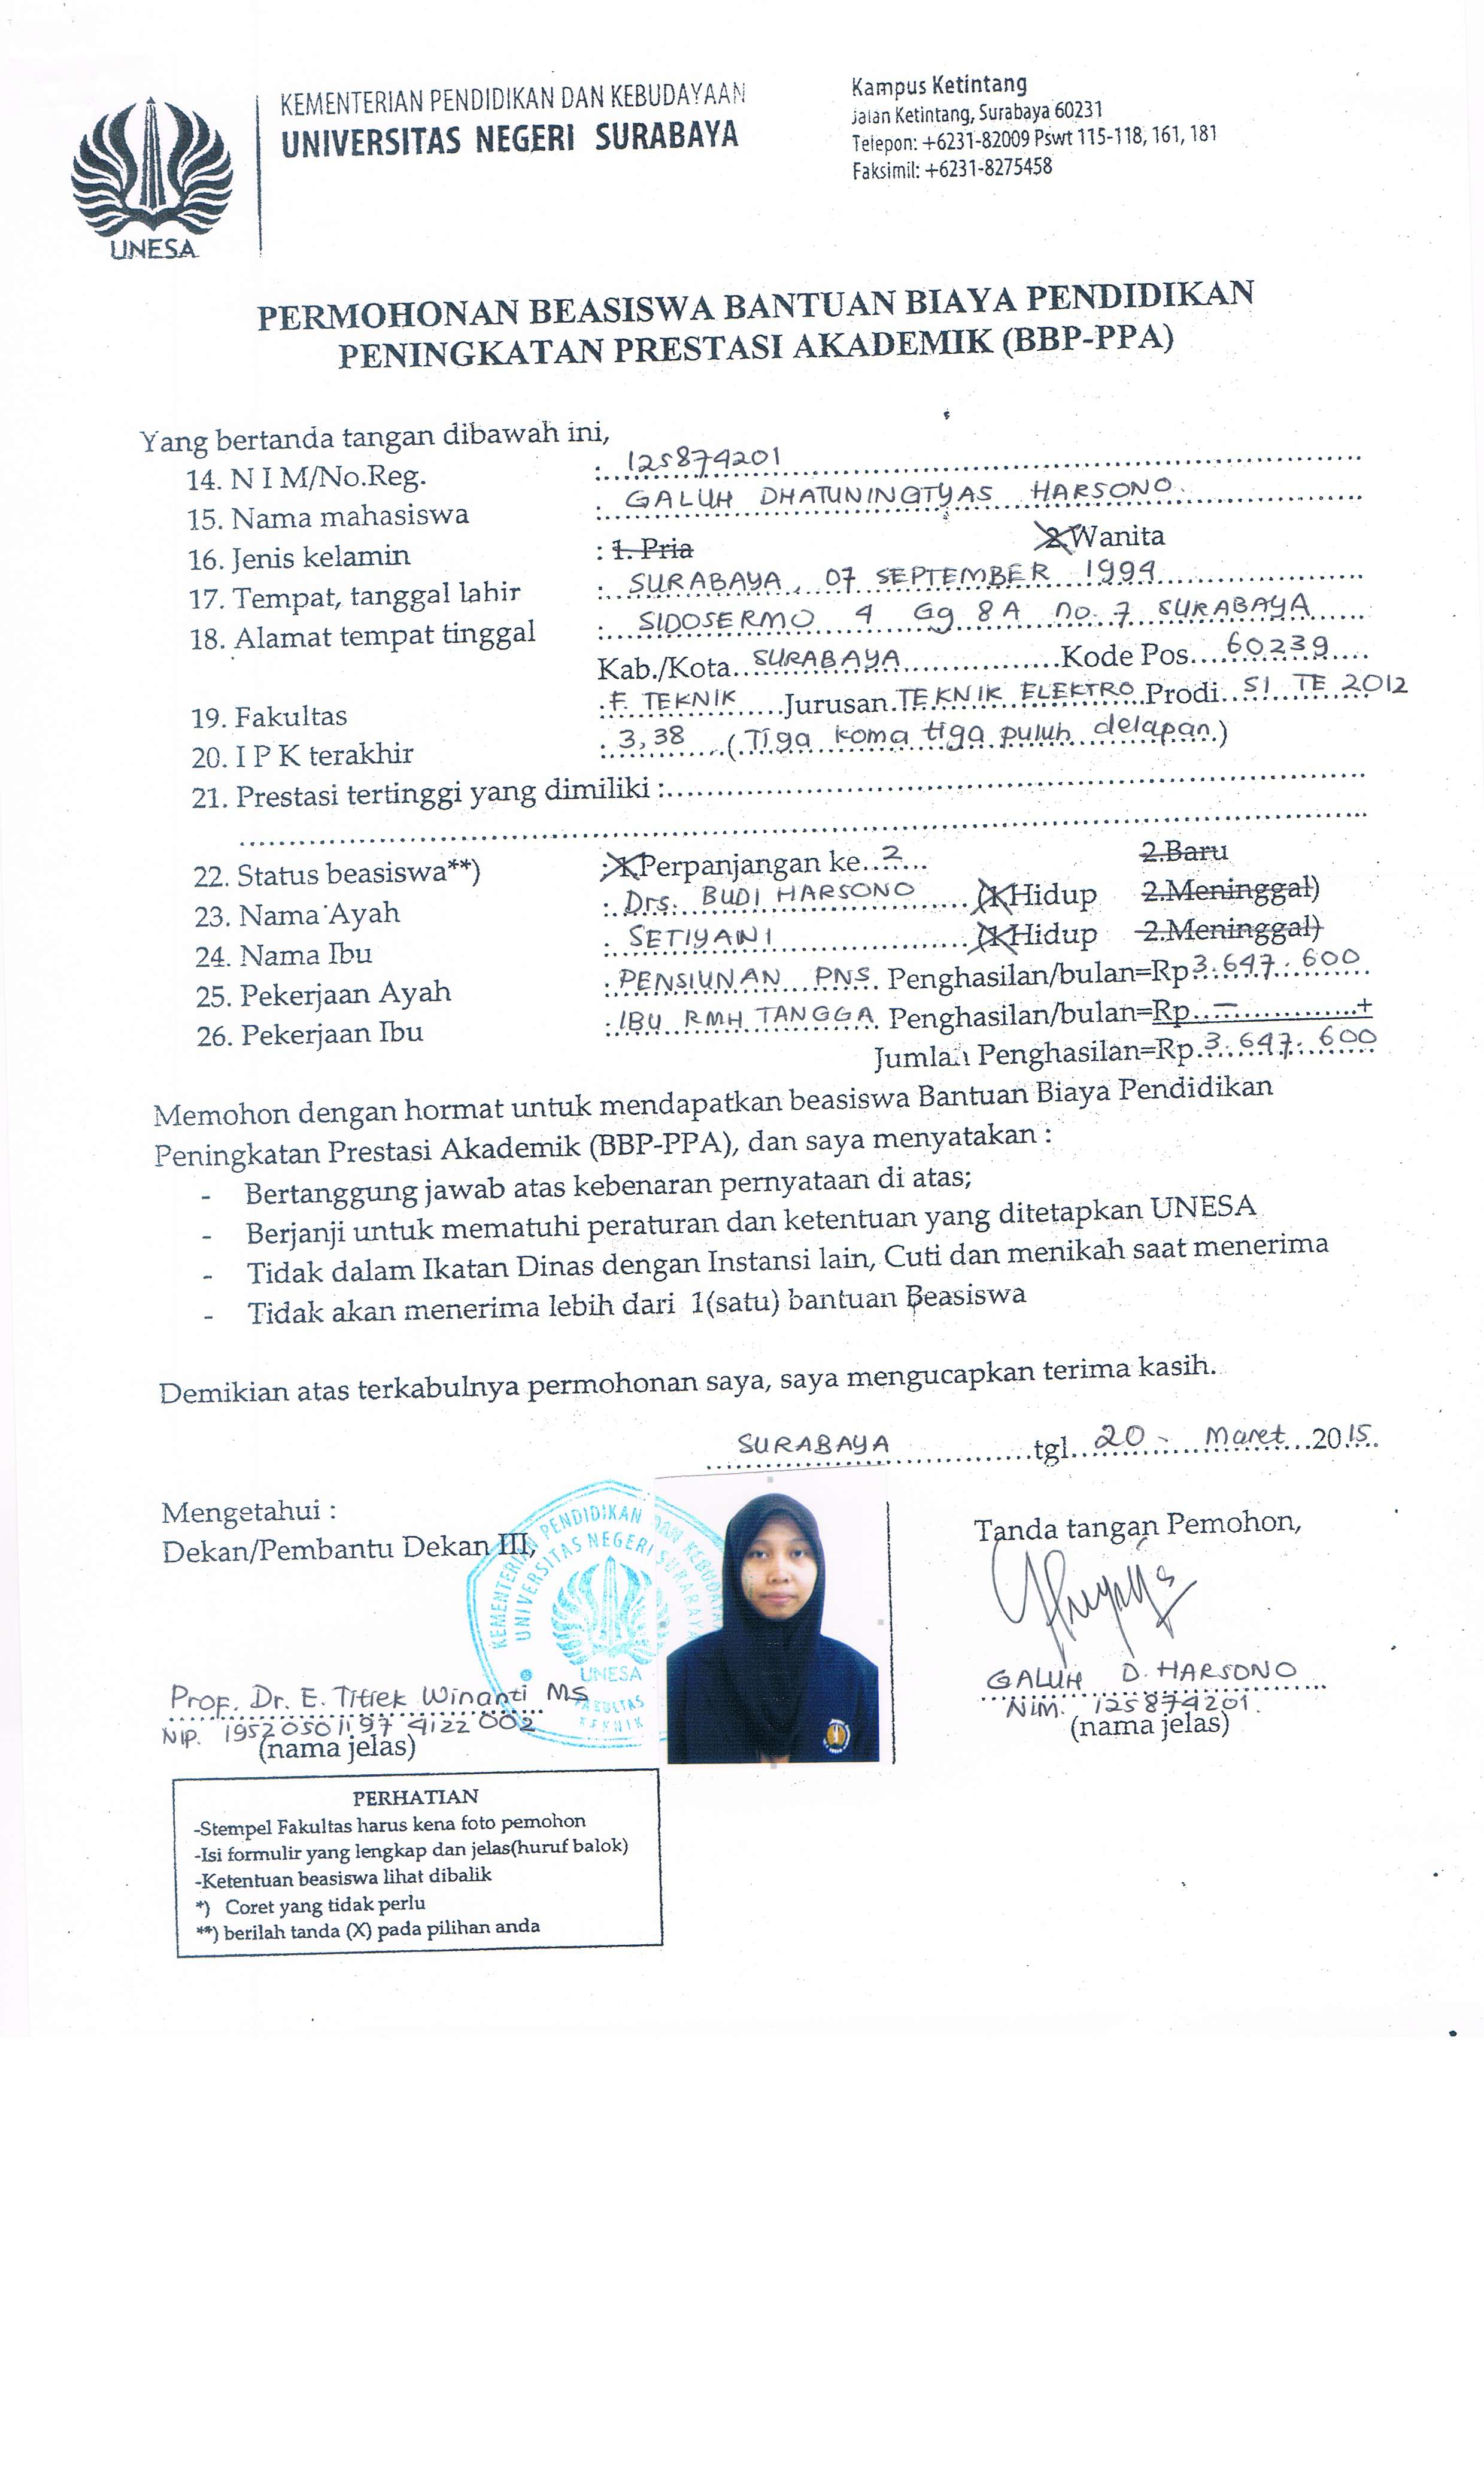 KEMENTERIAN PENDIDIKAN DAN KEBUDAYAAN
UNIVERSITAS NEGERI SURABAYA
UNESA
Kampus Ketintang
Jalan Ketintang, Surabaya 60231
Telepon: +6231-82009 Pswt 115-118, 161, 181
Faksimil: +6231-8275458
PERMOHONAN BEASISWA BANTUAN BIAYA PENDIDIKAN
PENINGKATAN PRESTASI AKADEMIK (BBP-PPA)
Yang bertanda tangan dibawah ini,
14. N I M/No.Reg. : 125874201
15. Nama mahasiswa : GALUH DHATUNINGTYAS HARSONO.
16. Jenis kelamin : 1. Pria 2. Wanita
17. Tempat, tanggal lahir : SURABAYA, 07 SEPTEMBER 1994
18. Alamat tempat tinggal : SIDOSERMO 4 Gg 8A no. 7 SURABAYA
Kab./Kota SURABAYA Kode Pos 60239
19. Fakultas : F. TEKNIK Jurusan TEKNIK ELEKTRO Prodi S1 TE 2012
20. I P K terakhir : 3,38 (Tiga koma tiga puluh delapan)
21. Prestasi tertinggi yang dimiliki :
22. Status beasiswa**) : 1 Perpanjangan ke 2 2.Baru
23. Nama Ayah : Drs. BUDI HARSONO (1 Hidup 2.Meninggal)
24. Nama Ibu : SETIYANI (1 Hidup 2.Meninggal)
25. Pekerjaan Ayah : PENSIUNAN PNS Penghasilan/bulan=Rp 3.647.600
26. Pekerjaan Ibu : IBU RMH TANGGA Penghasilan/bulan=Rp – +
Jumlah Penghasilan=Rp 3.647.600
Memohon dengan hormat untuk mendapatkan beasiswa Bantuan Biaya Pendidikan
Peningkatan Prestasi Akademik (BBP-PPA), dan saya menyatakan :
- Bertanggung jawab atas kebenaran pernyataan di atas;
- Berjanji untuk mematuhi peraturan dan ketentuan yang ditetapkan UNESA
- Tidak dalam Ikatan Dinas dengan Instansi lain, Cuti dan menikah saat menerima
- Tidak akan menerima lebih dari 1(satu) bantuan Beasiswa
Demikian atas terkabulnya permohonan saya, saya mengucapkan terima kasih.
SURABAYA tgl. 20 - Maret 2015
Mengetahui :
Dekan/Pembantu Dekan III,
KEMENTERIAN PENDIDIKAN DAN KEBUDAYAAN
UNIVERSITAS NEGERI SURABAYA
UNESA
FAKULTAS
TEKNIK
Prof. Dr. E. Titiek Winanti MS
NIP. 19520501197 4122 002
(nama jelas)
Tanda tangan Pemohon,
GALUH D. HARSONO
NIM. 125874201.
(nama jelas)
PERHATIAN
-Stempel Fakultas harus kena foto pemohon
-Isi formulir yang lengkap dan jelas(huruf balok)
-Ketentuan beasiswa lihat dibalik
*) Coret yang tidak perlu
**) berilah tanda (X) pada pilihan anda